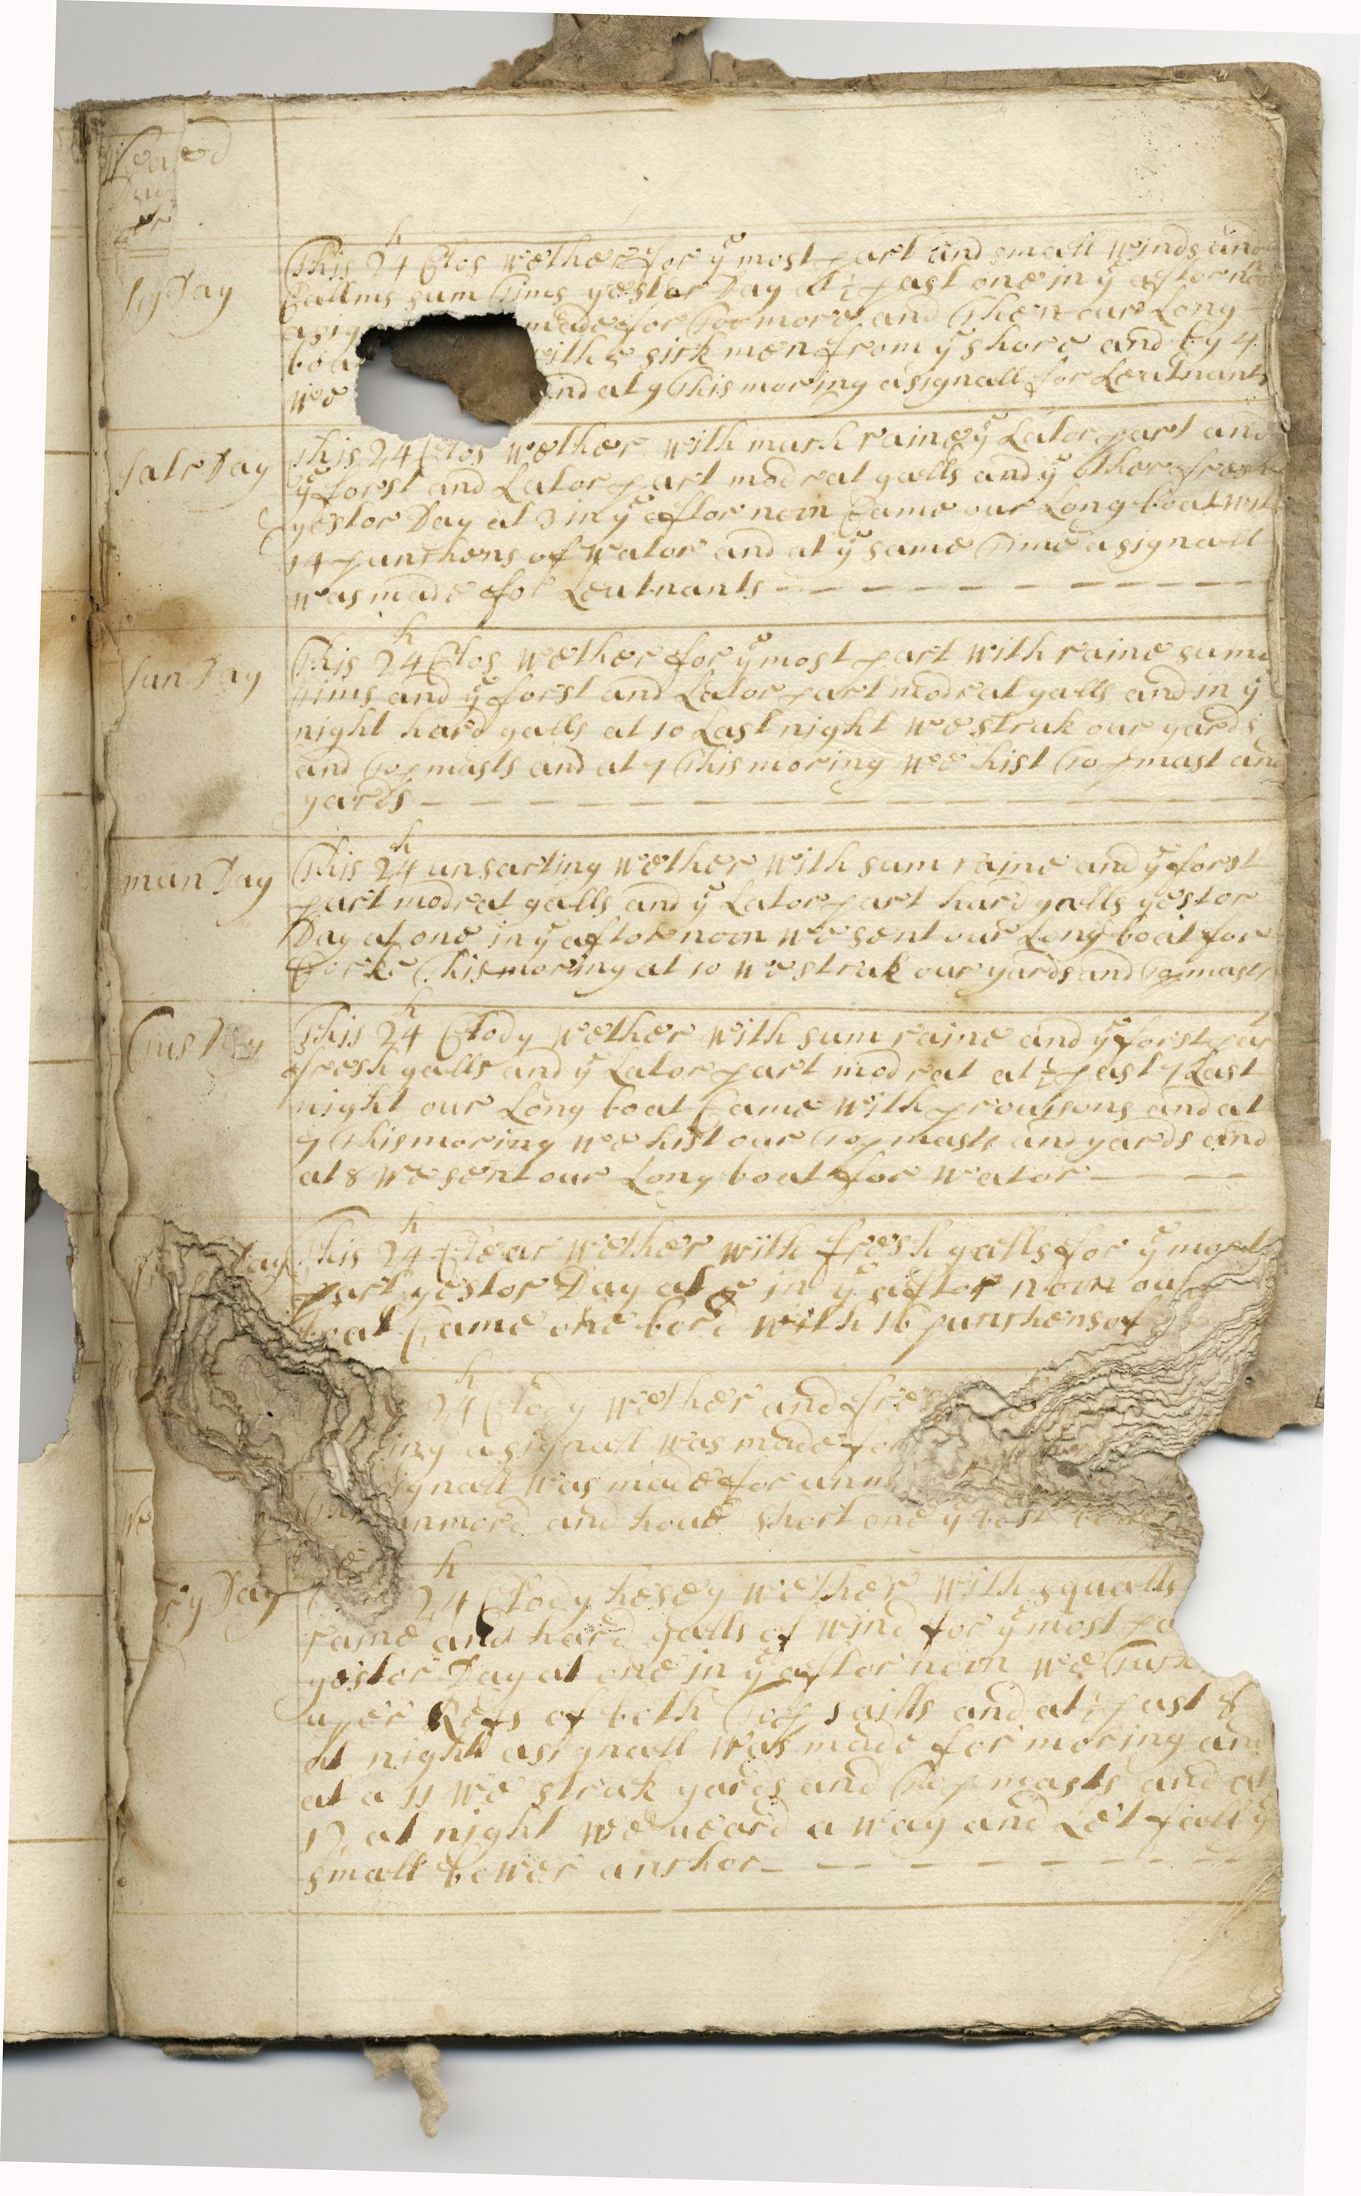 fryDay
This 24h Clos wether for ye most part and small winds and
Callms sum tims yestor Day at ½ past one in ye aftor noon
a sig made for too more and then our Long
boa with sick men from ye shore and by 4
we and at 9 this moring a signall for Leutnants
SatrDay
This 24h Clos wether with much raine ye Lator part and
ye forst and Lator part modrat galls and ye other fresh
yestor Day at 3 in ye aftor noon Came our Long boat with
14 punchens of wator and at ye same time a signall
was made for Leutnants
SunDay
This 24h Clos wether for ye most part with raine sume
tims and ye forst and Lator part modrat galls and in ye
night hard galls at 10 Last night we struk our yards
and topmasts and at 7 this moring we hist topmast and
yards
munDay
This 24h unsarting wether with sum raine and ye forst
part modrat galls and ye Lator part hard galls yestor
Day at one in ye aftor noon we sent our Long boat for
Corke this moring at 10 we struk our yards and topmasts
TusDay
This 24h Clody wether with sum raine and ye forst par
fresh galls and ye Lator part modrat at ½ past 7 Last
night our Long boat Came with prouisons and at
7 this moring we hist our topmasts and yards and
at 8 we sent our Long boat for wator
Day
This 24h Clear wether with fresh galls for ye most
part yestor Day at in ye aftor noon our
boat Came one bord with 16 punchens of
24h Clody wether and fres
ing a signall was made for
ignall was made for unm
unmord and houe short one ye best
ryDay
24h Clody hesey wether with squalls
raine and hard galls of wind for ye most pa
yestor Day at one in ye aftor noon we
uper Refs of both top saills and at ½ past 8
at night a signall was made for moring and
at a 11 we struk yards and topmasts and at
12 at night we ueard a way and Let fall ye
small bower anchor